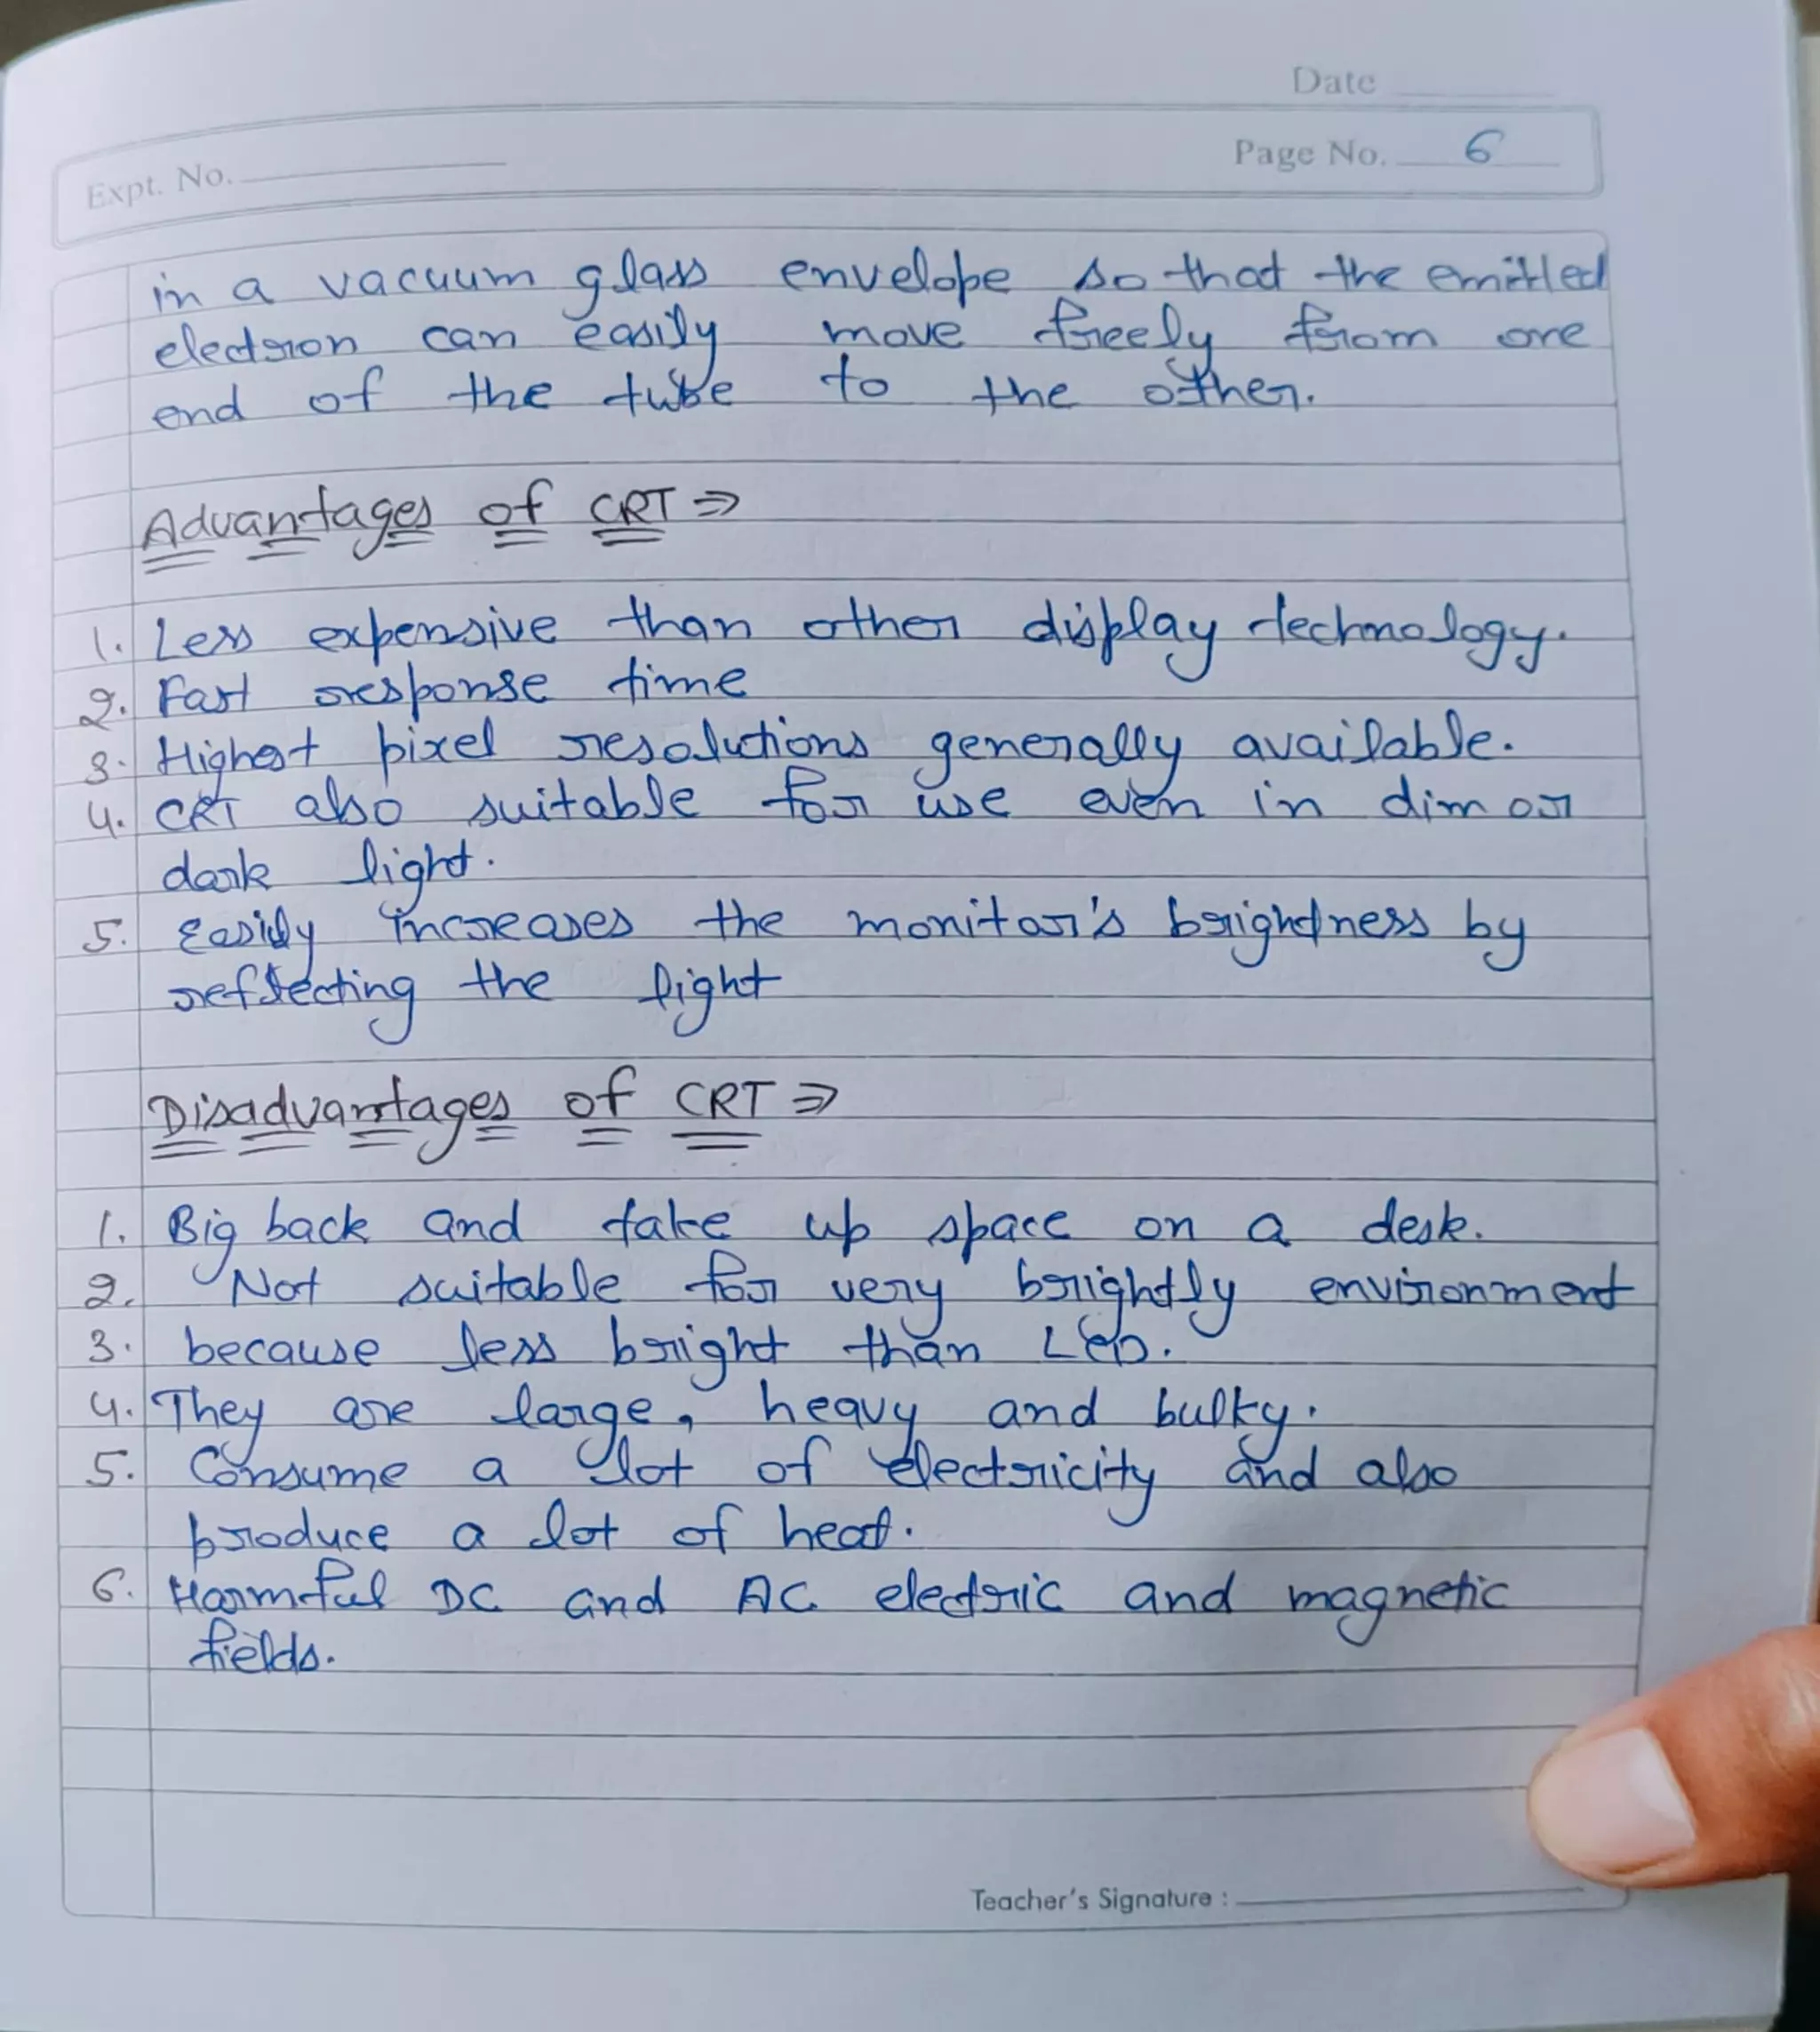 Date
Expt. No.
Page No. 6
in a vacuum glass envelope so that the emitted
electron can easily move freely from one
end of the tube to the other.
Advantages of CRT ⇒
1. Less expensive than other display technology.
2. Fast response time
3. Highest pixel resolutions generally available.
4. CRT also suitable for use even in dim or
dark light.
5. Easily increases the monitor's brightness by
reflecting the light
Disadvantages of CRT ⇒
1. Big back and take up space on a desk.
2. Not suitable for very brightly environment
3. because less bright than LED.
4. They are large, heavy and bulky.
5. Consume a lot of electricity and also
produce a lot of heat.
6. Harmful DC and AC electric and magnetic
fields.
Teacher's Signature :